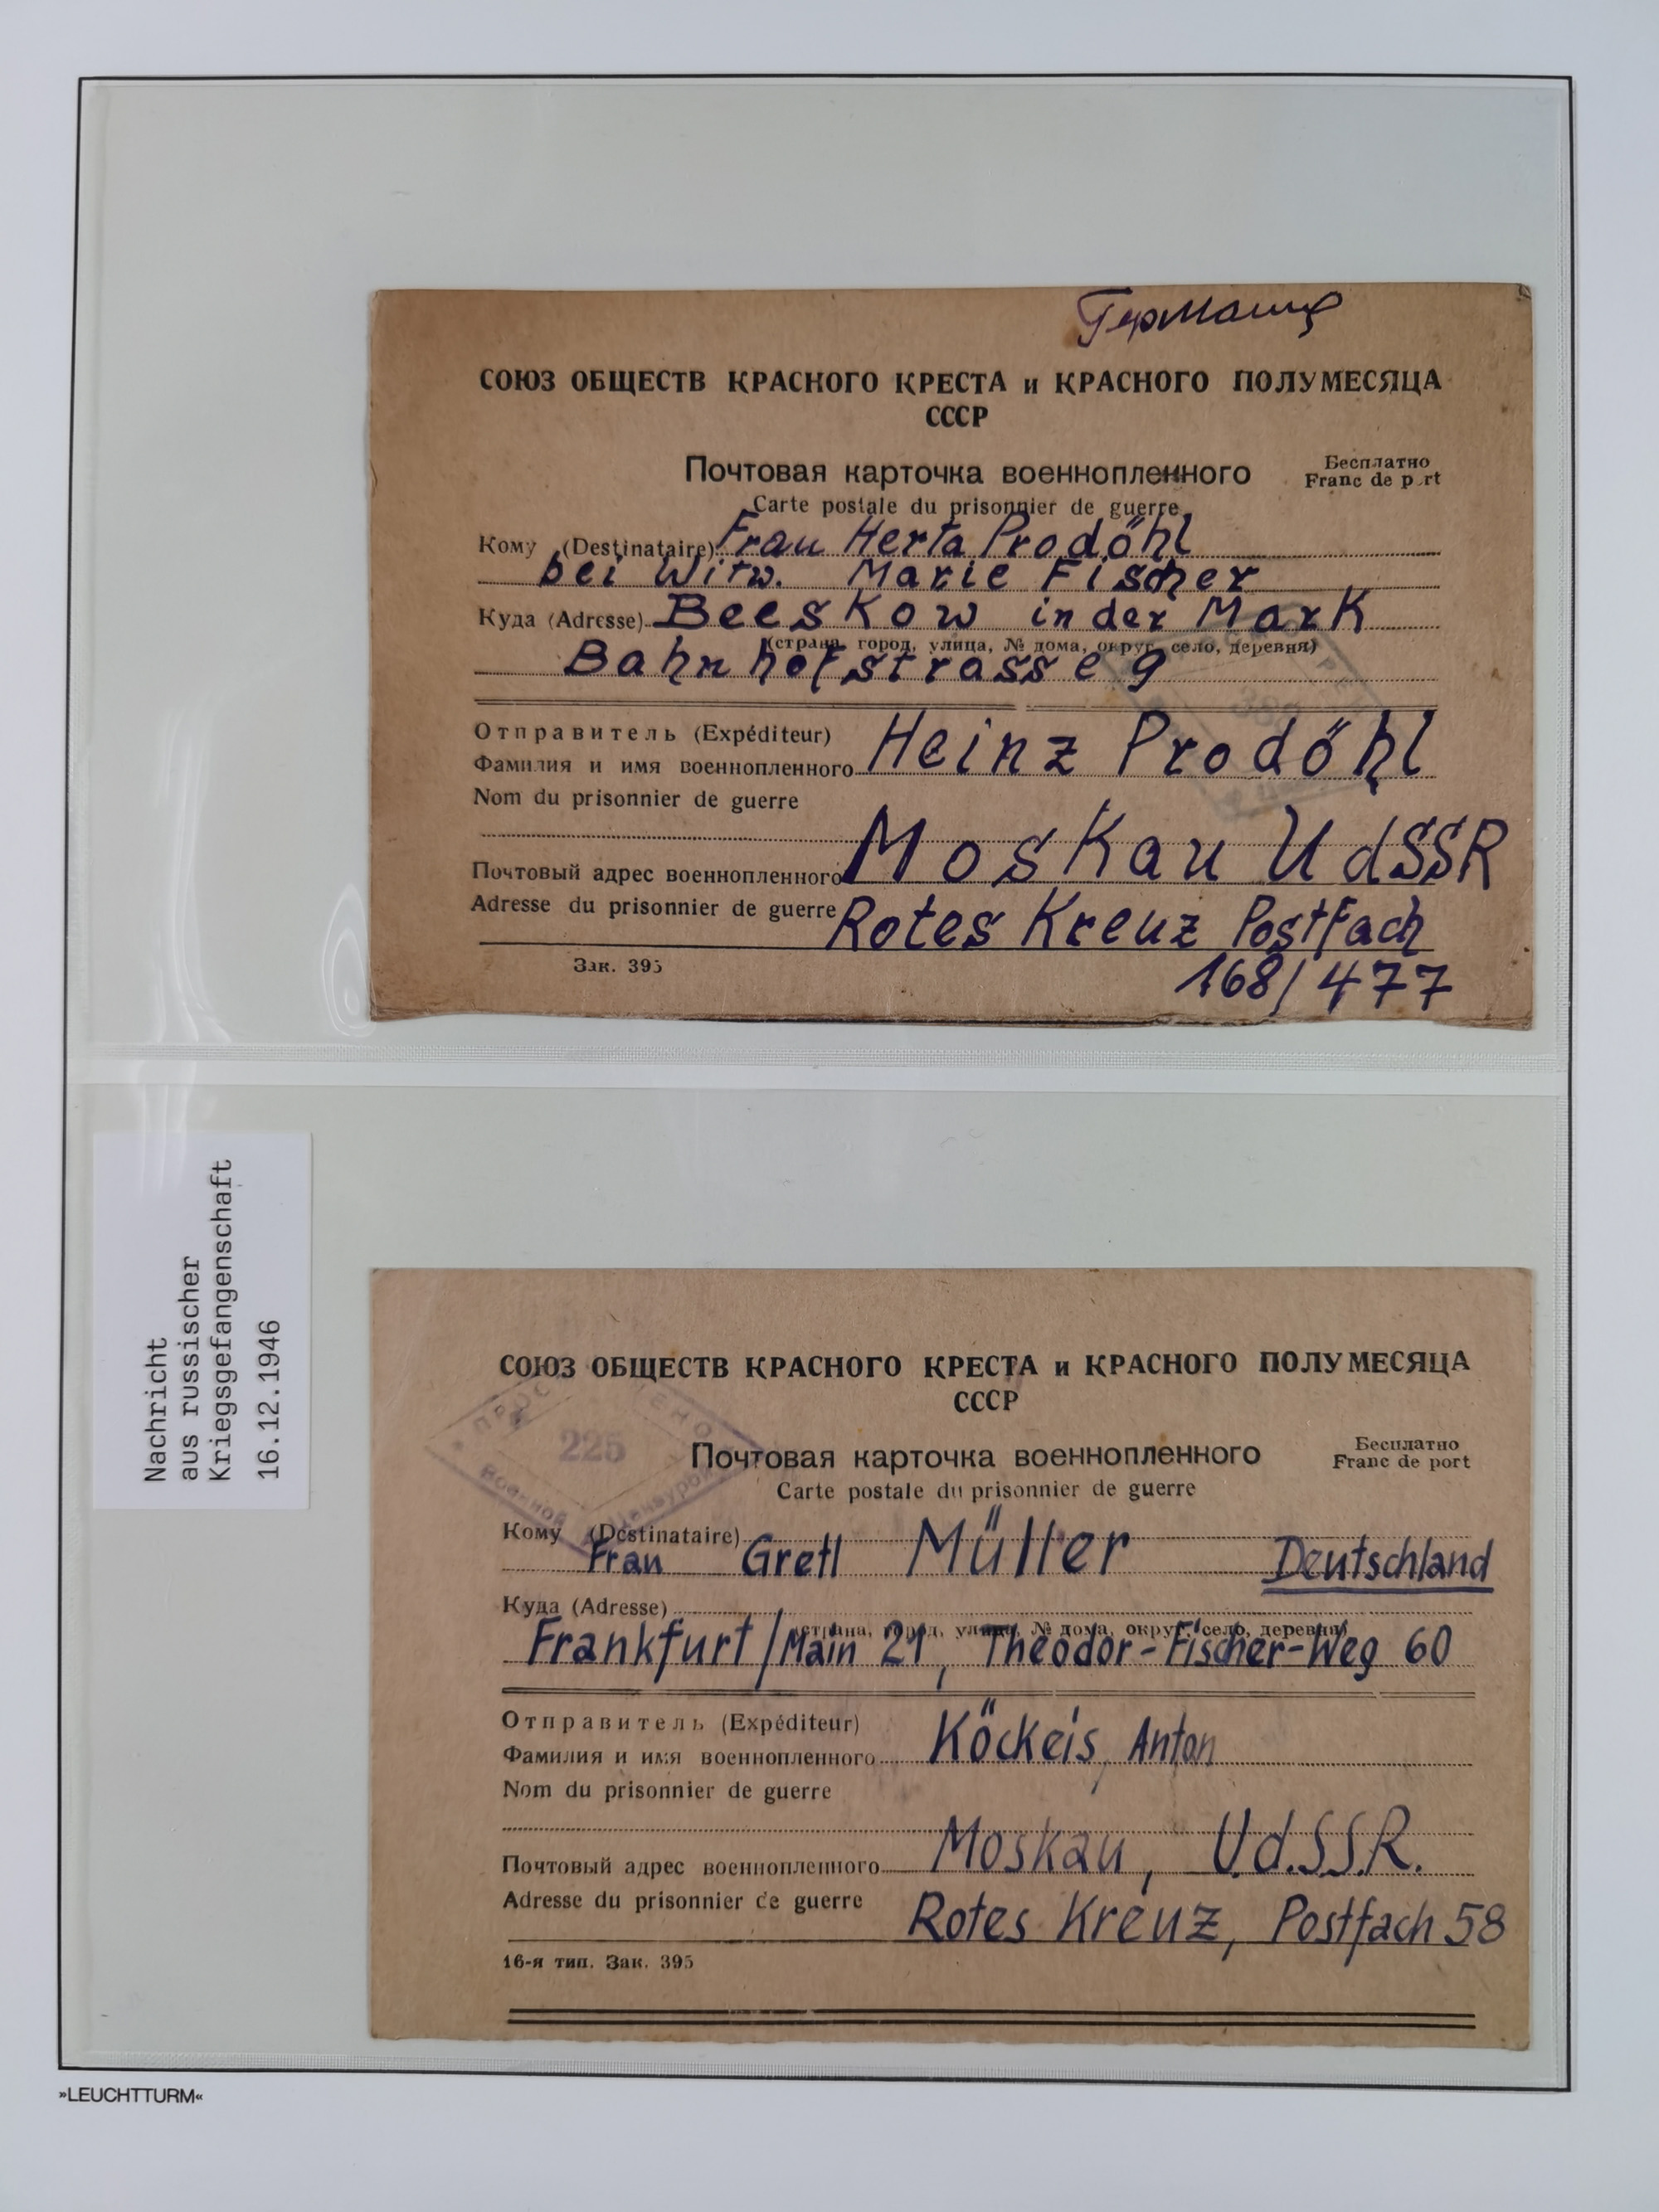 Германия
СОЮЗ ОБЩЕСТВ КРАСНОГО КРЕСТА и КРАСНОГО ПОЛУМЕСЯЦА
СССР
Почтовая карточка военнопленного
Бесплатно
Franc de p rt
Carte postale du prisonnier de guerre
Кому (Destinataire) Frau Herta Prodöhl
bei Witw. Marie Fischer
Куда (Adresse) Beeskow in der Mark
(страна, город, улица, № дома, округ, село, деревня)
Bahnhofstrasse 9
Отправитель (Expéditeur)
Фамилия и имя военнопленного Heinz Prodöhl
Nom du prisonnier de guerre
Почтовый адрес военнопленного Moskau UdSSR
Adresse du prisonnier de guerre Rotes Kreuz Postfach
Зак. 395
168/477
Nachricht
aus russischer
Kriegsgefangenschaft
16.12.1946
СОЮЗ ОБЩЕСТВ КРАСНОГО КРЕСТА и КРАСНОГО ПОЛУМЕСЯЦА
СССР
225
Военной
Почтовая карточка военнопленного
Бесплатно
Franc de port
Carte postale du prisonnier de guerre
Кому (Destinataire)
Frau Gretl Müller Deutschland
Куда (Adresse)
(страна, город, улица, № дома, округ, село, деревня)
Frankfurt/Main 21, Theodor-Fischer-Weg 60
Отправитель (Expéditeur)
Фамилия и имя военнопленного Köckeis, Anton
Nom du prisonnier de guerre
Почтовый адрес военнопленного Moskau, U.d.S.S.R.
Adresse du prisonnier de guerre Rotes Kreuz, Postfach 58
16-я тип. Зак. 395
»LEUCHTTURM«